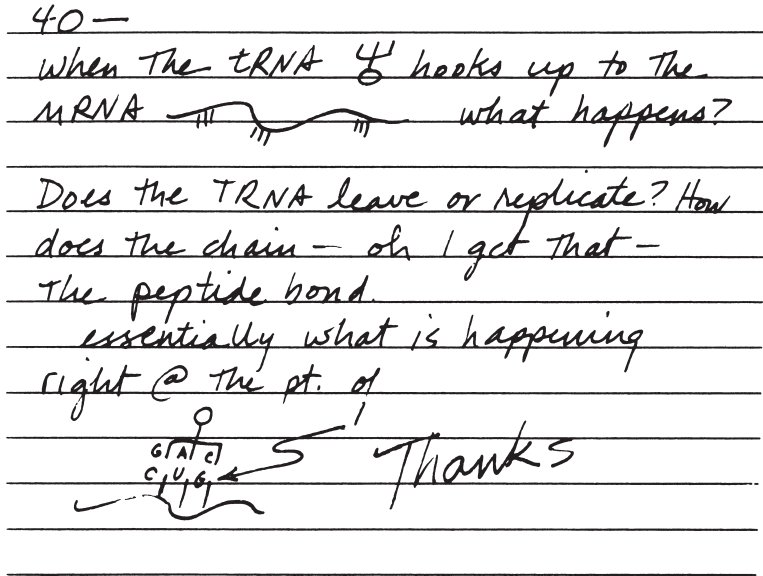 40—
when The tRNA hooks up to The
MRNA what happens?
Does the TRNA leave or replicate? How
does the chain — oh I get That —
The peptide bond.
essentially what is happening
right @ The pt. of
G A C
C U G
Thanks